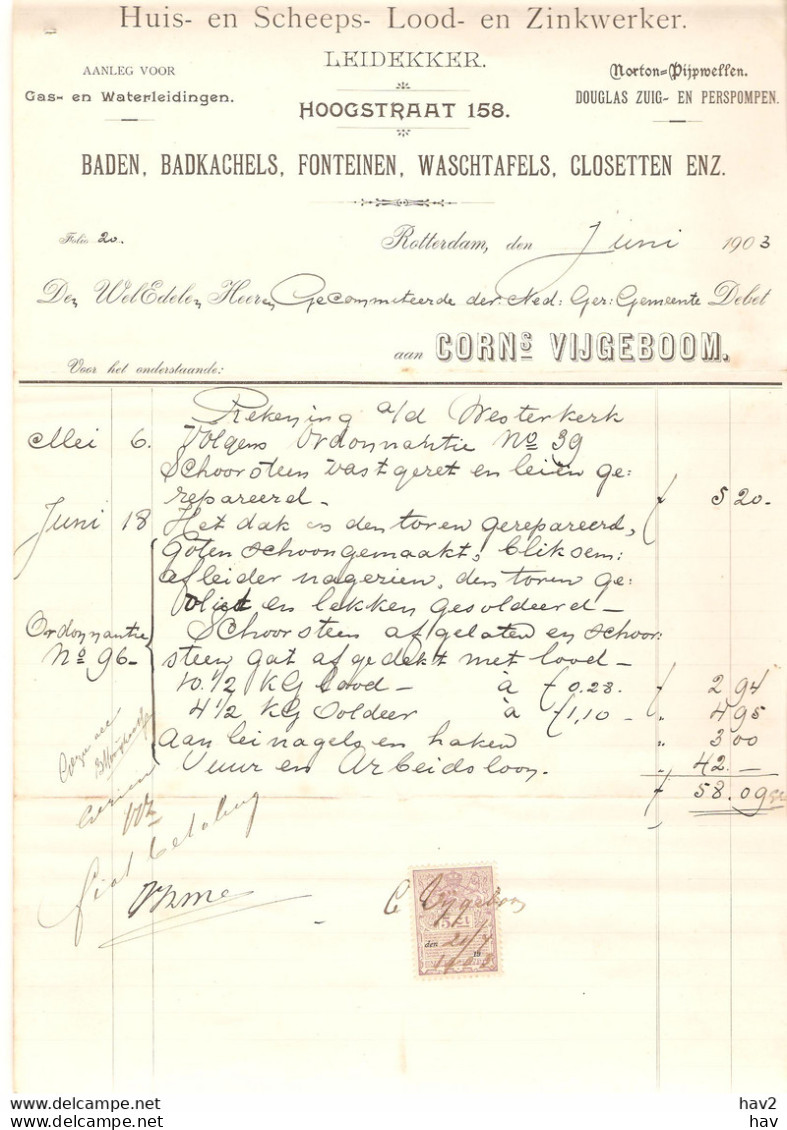 Huis- en Scheeps- Lood- en Zinkwerker.
LEIDEKKER.
AANLEG VOOR
Gas- en Waterleidingen.
HOOGSTRAAT 158.
Norton=Pijpwellen.
DOUGLAS ZUIG- EN PERSPOMPEN.
BADEN, BADKACHELS, FONTEINEN, WASCHTAFELS, CLOSETTEN ENZ.
Folio 20.
Rotterdam, den Juni 1903
Den WelEdelen Heeren Gecommiteerde der Ned: Ger: Gemeente Debet
aan CORNS VIJGEBOOM.
Voor het onderstaande:
Rekening a/d Westerkerk
Mei 6. Volgens Ordonnantie No 39
Schoorsteen vast geret en leien ge:
repareerd - f 5 20.-
Juni 18 Het dak en den toren gerepareerd,
goten schoongemaakt, bliksem:
afleider nagezien, den toren ge:
en lekken gesoldeerd -
Ordonnantie
No 96-
Schoorsteen afgelaten en schoor:
steen gat afgedekt met lood -
10.1/2 KG Lood - à f 0.28. f 2 94
4 1/2 KG Soldeer à f 1,10 - " 4 95
Aan leinagels en haken " 3 00
Vuur en Arbeidsloon. " 42.-
f 58.09
fiat betaling
C Vijgeboom
den 20/7
1903
hav2
hav